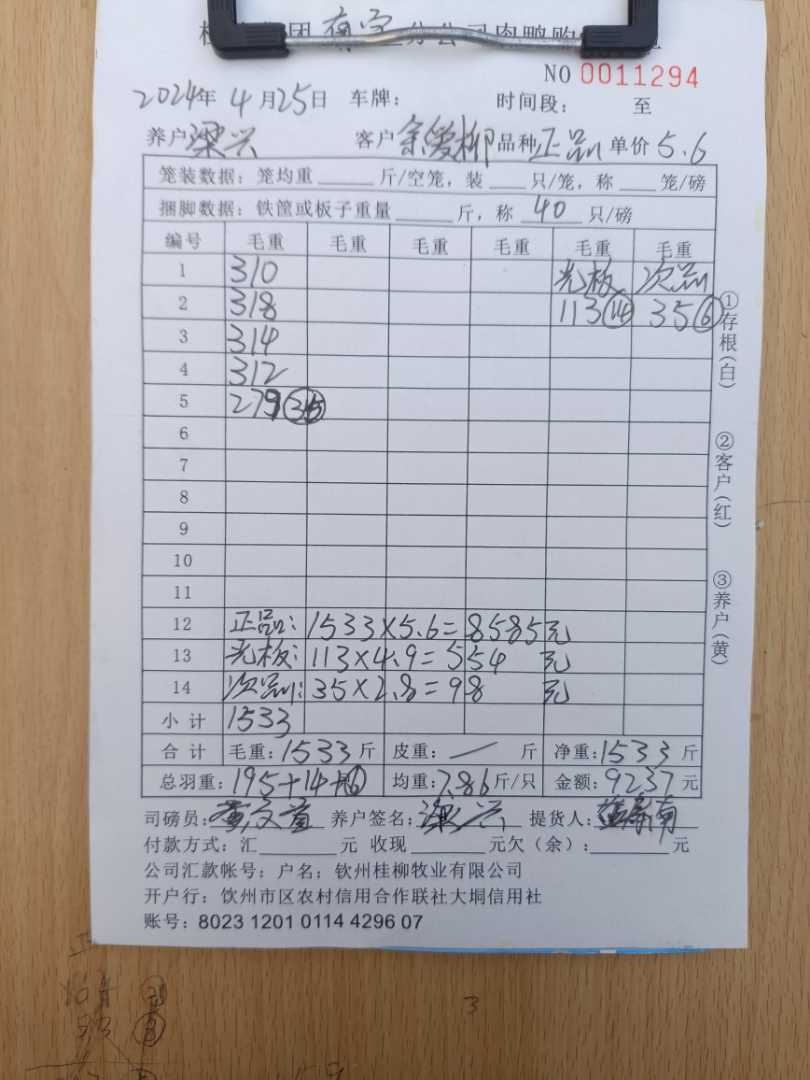 团 分公司肉鸭购
NO 0011294
2024年 4月25日 车牌: 时间段: 至
养户 梁兴 客户 余爱柳 品种 正品 单价 5.6
笼装数据: 笼均重 斤/空笼, 装 只/笼, 称 笼/磅
捆脚数据: 铁筐或板子重量 斤, 称 40 只/磅
编号 毛重 毛重 毛重 毛重 毛重 毛重
1 310 光板 次品
2 318 113 14 35 6
3 314
4 312
5 279 35
6
7
8
9
10
11
12 正品: 1533×5.6=8585元
13 光板: 113×4.9=554 元
14 次品: 35×2.8=98 元
小计 1533
合计 毛重: 1533斤 皮重: 斤 净重: 1533斤
总羽重: 195+14+6 均重: 7.86斤/只 金额: 9237元
司磅员: 养户签名: 梁兴 提货人:
付款方式: 汇 元 收现 元欠(余): 元
公司汇款帐号: 户名: 钦州桂柳牧业有限公司
开户行: 饮州市区农村信用合作联社大垌信用社
账号: 8023 1201 0114 4296 07
①存根(白)
②客户(红)
③养户(黄)
3